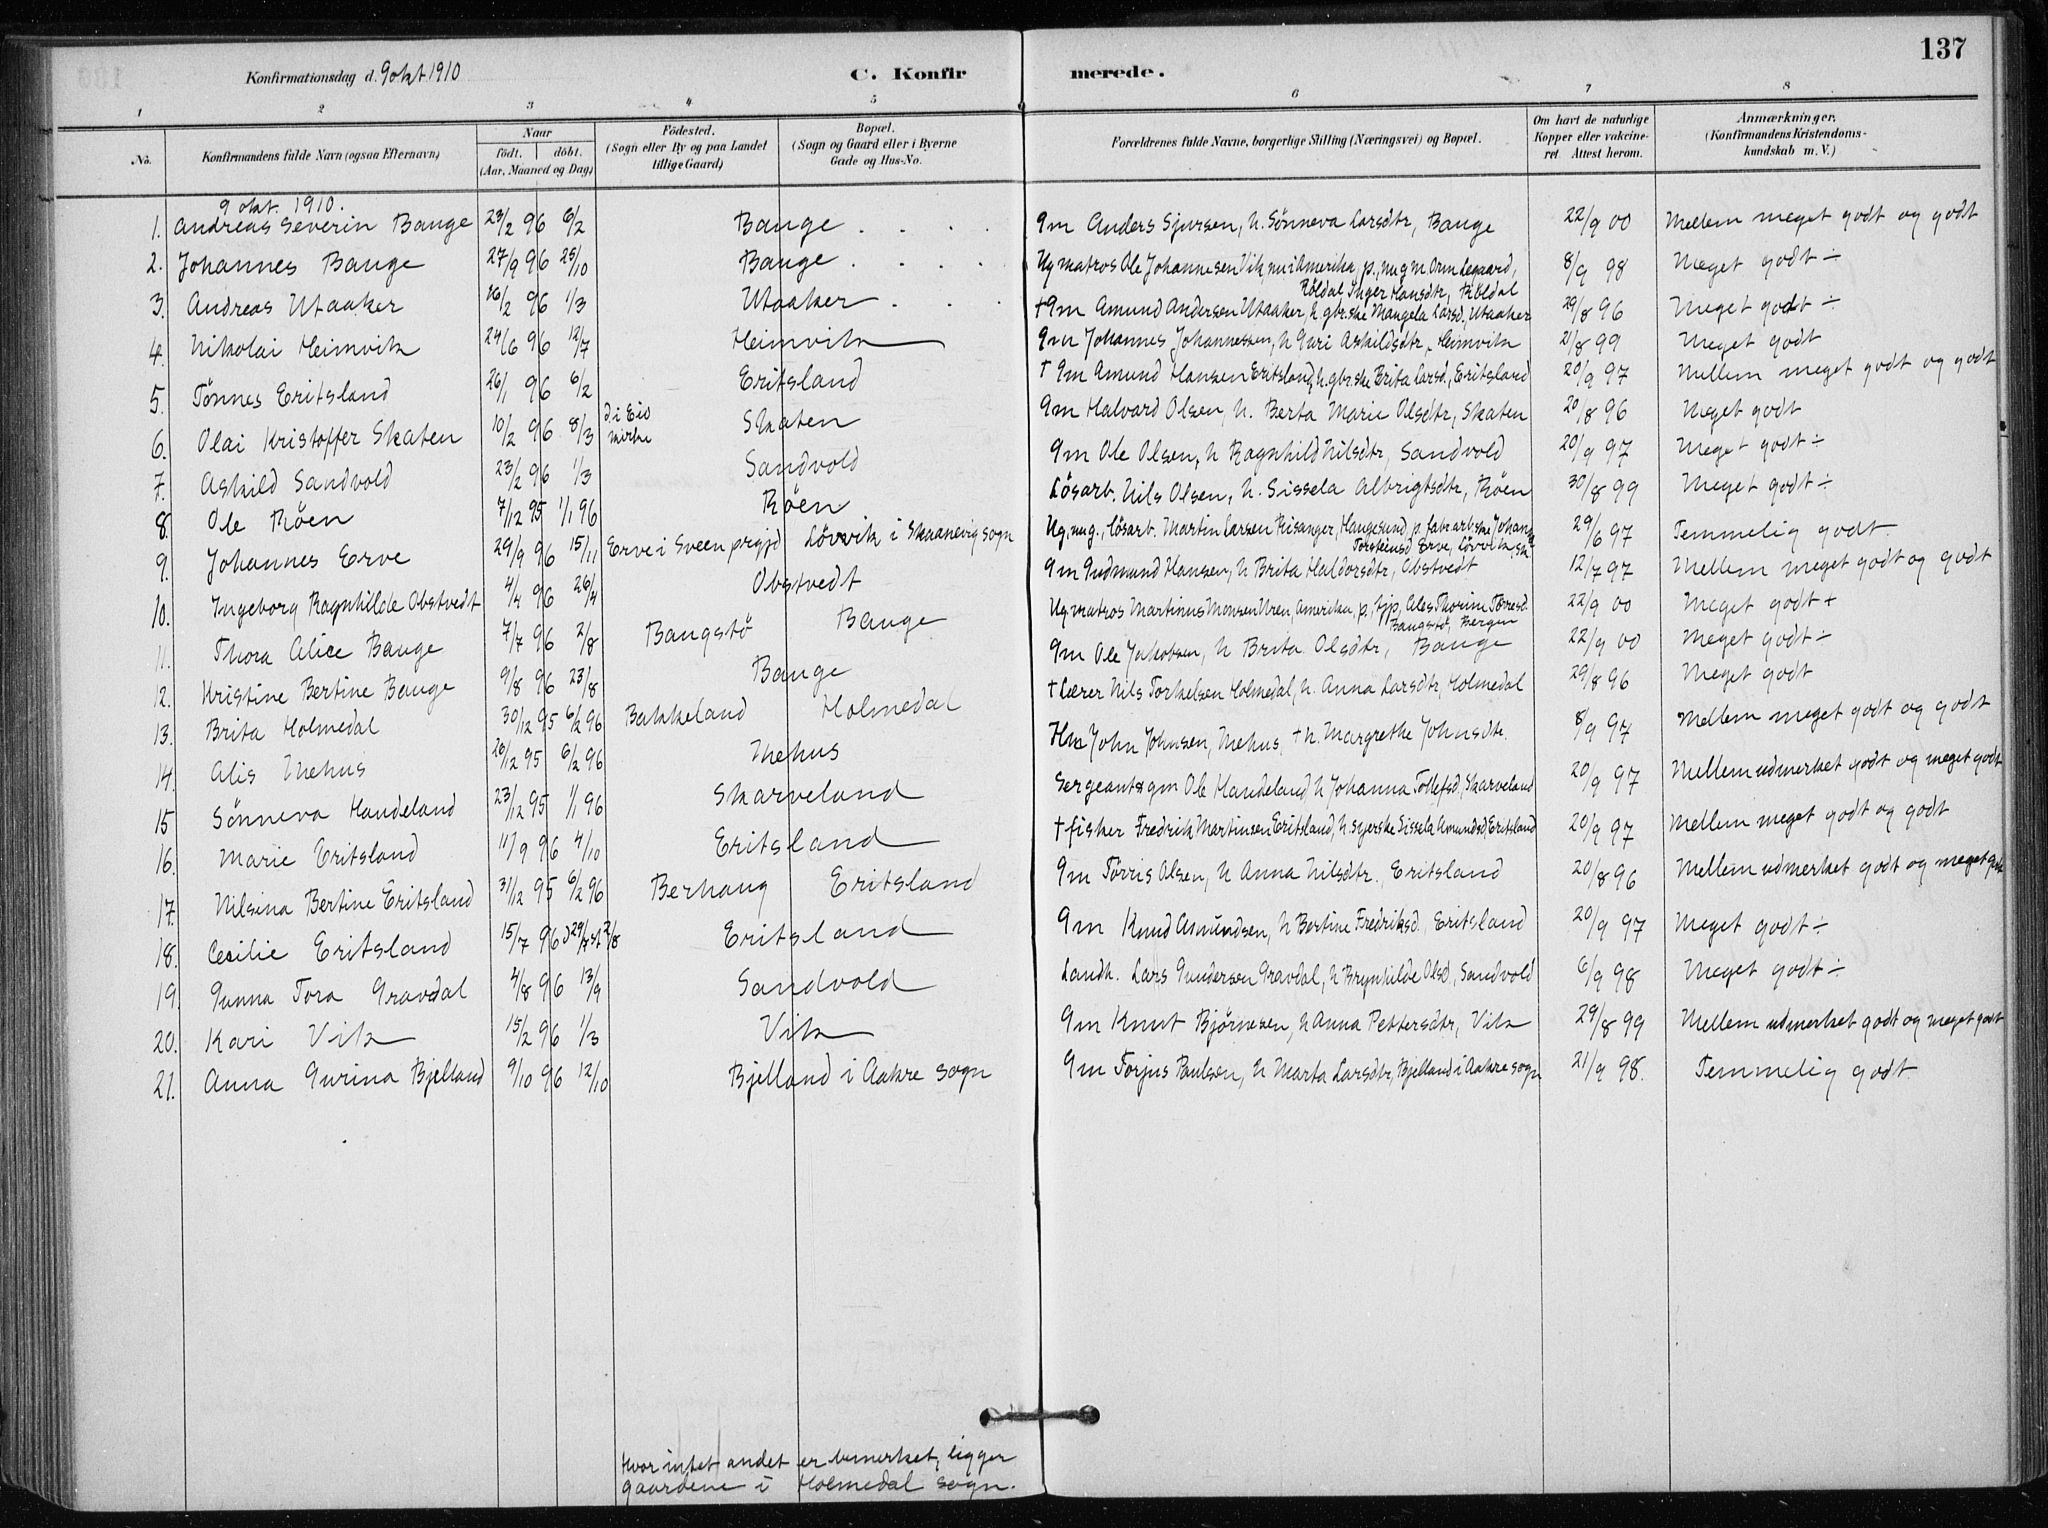 137
Konfirmationsdag d. 9 okt 1910 C. Konfirmerede.
1 2 3 4 5 6 7 8
No. Konfirmandens fulde Navn (ogsaa Efternavn) Naar födt. döbt. (Aar, Maaned og Dag) Födested. (Sogn eller By og paa Landet tillige Gaard) Bopæl. (Sogn og Gaard eller i Byerne Gade og Hus-No. Forældrenes fulde Navne, borgerlige Stilling (Næringsvei) og Bopæl. Om havt de naturlige Kopper eller vakcineret. Attest herom. Anmærkninger. (Konfirmandens Kristendomskundskab m. V.)
9 okt. 1910.
1. Andreas Severin Bauge 23/2 96 6/2 Bauge . . . . Gm Anders Sjursen, h. Sönneva Larsdtr, Bauge 22/9 00 Mellem meget godt og godt
2. Johannes Bauge 27/9 96 25/10 Bauge . . . . Ug matros Ole Johannesen Vik, nu i Amerika, p., nu g m. Orm Legaard, Röldal Inger Hansdtr, Röldal 8/9 98 Meget godt ÷
3. Andreas Utaaker 26/2 96 1/3 Utaaker . . . † Gm Amund Andersen Utaaker, h. gbr.ske Mangela Larsd., Utaaker 29/8 96 Meget godt ÷
4. Nikolai Heimvik 24/6 96 12/7 Heimvik Gm Johannes Johannessen, h Guri Askildsdtr, Heimvik 21/8 99 Meget godt
5. Tönnes Eritsland 26/1 96 6/2 Eritsland † Gm Amund Hansen Eritsland, h. gbr.ske Brita Larsd., Eritsland 20/9 97 Mellem meget godt og godt
6. Olai Kristoffer Skaten 10/2 96 8/3 d. i Eid kirke Skaten Gm Halvard Olsen, h. Berta Marie Olsdtr, Skaten 20/8 96 Meget godt
7. Askild Sandvold 23/2 96 1/3 Sandvold Gm Ole Olsen, h Ragnhild Nilsdtr, Sandvold 20/9 97 Meget godt ÷
8. Ole Röen 7/12 95 1/1 96 Röen Lösarb. Nils Olsen, h. Sissela Albrigtsdtr, Röen 30/8 99 Meget godt ÷
9. Johannes Erve 29/9 96 15/11 Erve i Sveen prgjd Lövvik i Skaanevig sogn Ug, nu g., lösarb. Martin Larsen Risanger, Haugesund, p. fabr.arb.ske Johanne Torsteinsd Erve, Lövvik, Sk. 29/6 97 Temmelig godt.
10. Ingeborg Ragnhilde Obstvedt 4/4 96 26/4 Obstvedt Gm Gudmund Hansen, h Brita Haldorsdtr, Obstvedt 12/7 97 Mellem meget godt og godt
11. Thora Alice Bauge 7/7 96 2/8 Baugstö Bauge Ug matros Martinus Monsen Uren, Amerika, p. tjp, Ales Thorine Törresd. Baugstö, Bergen 22/9 00 Meget godt +
12. Kristine Bertine Bauge 9/8 96 23/8 Bauge Gm Ole Jakobsen, h Brita Olsdtr, Bauge 22/9 00 Meget godt ÷
13. Brita Holmedal 30/12 95 6/2 96 Bakkeland Holmedal † Lærer Nils Torkelsen Holmedal, h. Anna Larsdtr, Holmedal 29/8 96 Meget godt
14. Alis Mehus 26/12 95 6/2 96 Mehus Hm John Johnsen, Mehus, † h. Margrethe Johnsdtr. 8/9 97 Mellem meget godt og godt
15 Sönneva Handeland 23/12 95 1/1 96 Skarveland Sergeant & gm Ole Handeland h Johanna Tollefsd, Skarveland 20/9 97 Mellem udmerket godt og meget godt
16. Marie Eritsland 11/9 96 4/10 Eritsland † fisker Fredrik Martinsen Eritsland, h. syerske Sissela Amundsd, Eritsland 20/9 97 Mellem meget godt og godt
17. Nilsina Bertine Eritsland 31/12 95 6/2 96 Berhaug Eritsland Gm Törris Olsen, h Anna Nilsdtr., Eritsland 20/8 96 Mellem udmerket godt og meget godt
18. Cecilie Eritsland 15/7 96 d 29/7 st 2/8 Eritsland Gm Knud Asmundsen, h Bertine Fredriksd., Eritsland 20/9 97 Meget godt ÷
19. Gunna Tora Gravdal 4/8 96 13/9 Sandvold Landh. Lars Gundersen Gravdal, h Brynhilde Olsd, Sandvold 6/9 98 Meget godt ÷
20. Kari Vik 15/2 96 1/3 Vik Gm Knut Bjørnesen, h Anna Pettersdtr, Vik 29/8 99 Mellem udmerket godt og meget godt
21. Anna Gurina Bjelland 9/10 96 12/10 Bjelland i Aakre sogn Gm Torjus Paulsen, h Marta Larsdtr, Bjelland i Aakre sogn 21/9 98. Temmelig godt
Hvor intet andet er bemerket, ligger
gaardene i Holmedal sogn.